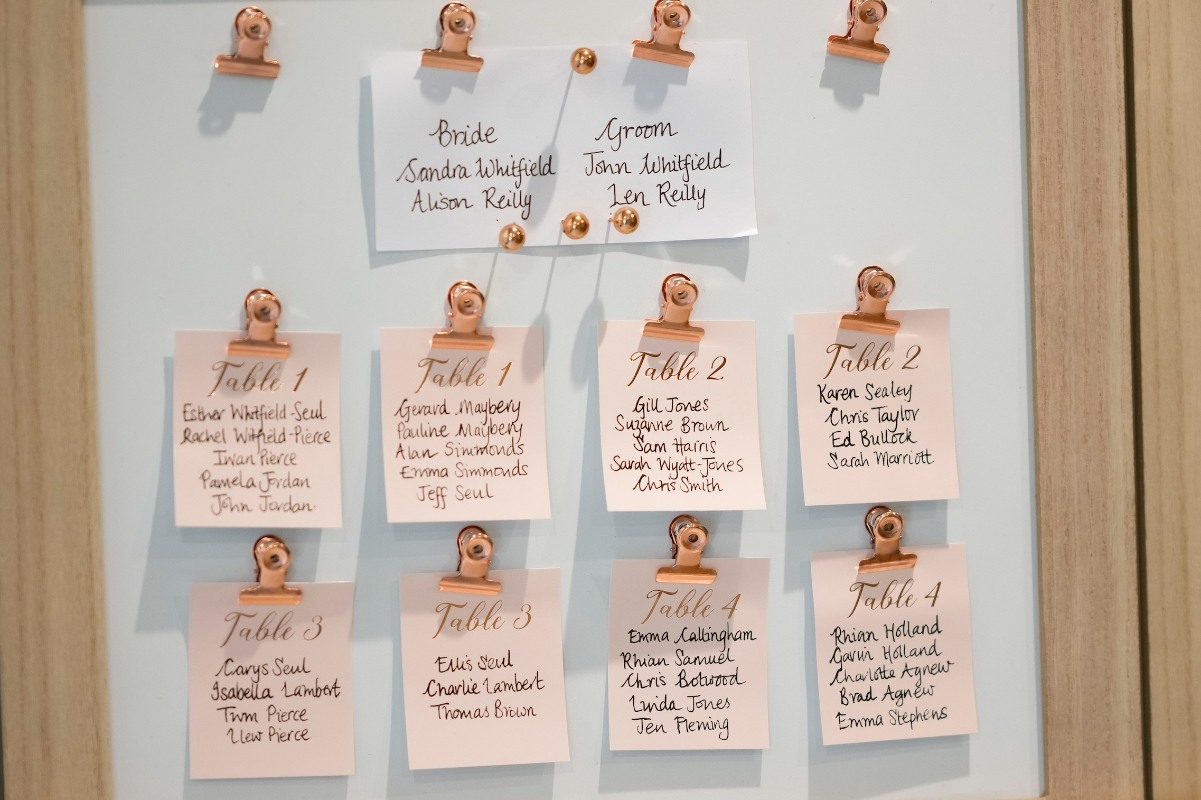 Bride
Sandra Whitfield
Alison Reilly
Groom
John Whitfield
Len Reilly
Table 1
Esther Whitfield-Seul
Rachel Witfield-Pierce
Iwan Pierce
Pamela Jordan
John Jordan
Table 1
Gerard Maybery
Pauline Maybery
Alan Simmonds
Emma Simmonds
Jeff Seul
Table 2
Gill Jones
Suzanne Brown
Sam Harris
Sarah Wyatt-Jones
Chris Smith
Table 2
Karen Sealey
Chris Taylor
Ed Bullock
Sarah Marriott
Table 3
Carys Seul
Isabella Lambert
Twm Pierce
Llew Pierce
Table 3
Ellis Seul
Charlie Lambert
Thomas Brown
Table 4
Emma Callingham
Rhian Samuel
Chris Botwood
Linda Jones
Jen Fleming
Table 4
Rhian Holland
Gavin Holland
Charlotte Agnew
Brad Agnew
Emma Stephens